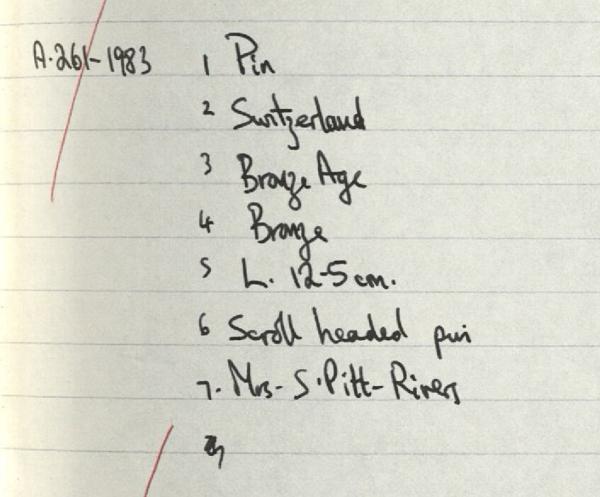 A.261-1983 1 Pin
2 Switzerland
3 Bronze Age
4 Bronze
5 L. 12-5 cm.
6 Scroll headed pin
7. Mrs- S. Pitt-Rivers